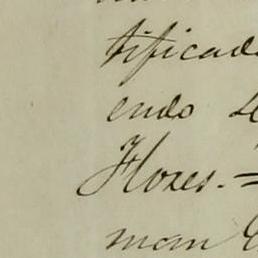 tificad
endo
Flores. =
man